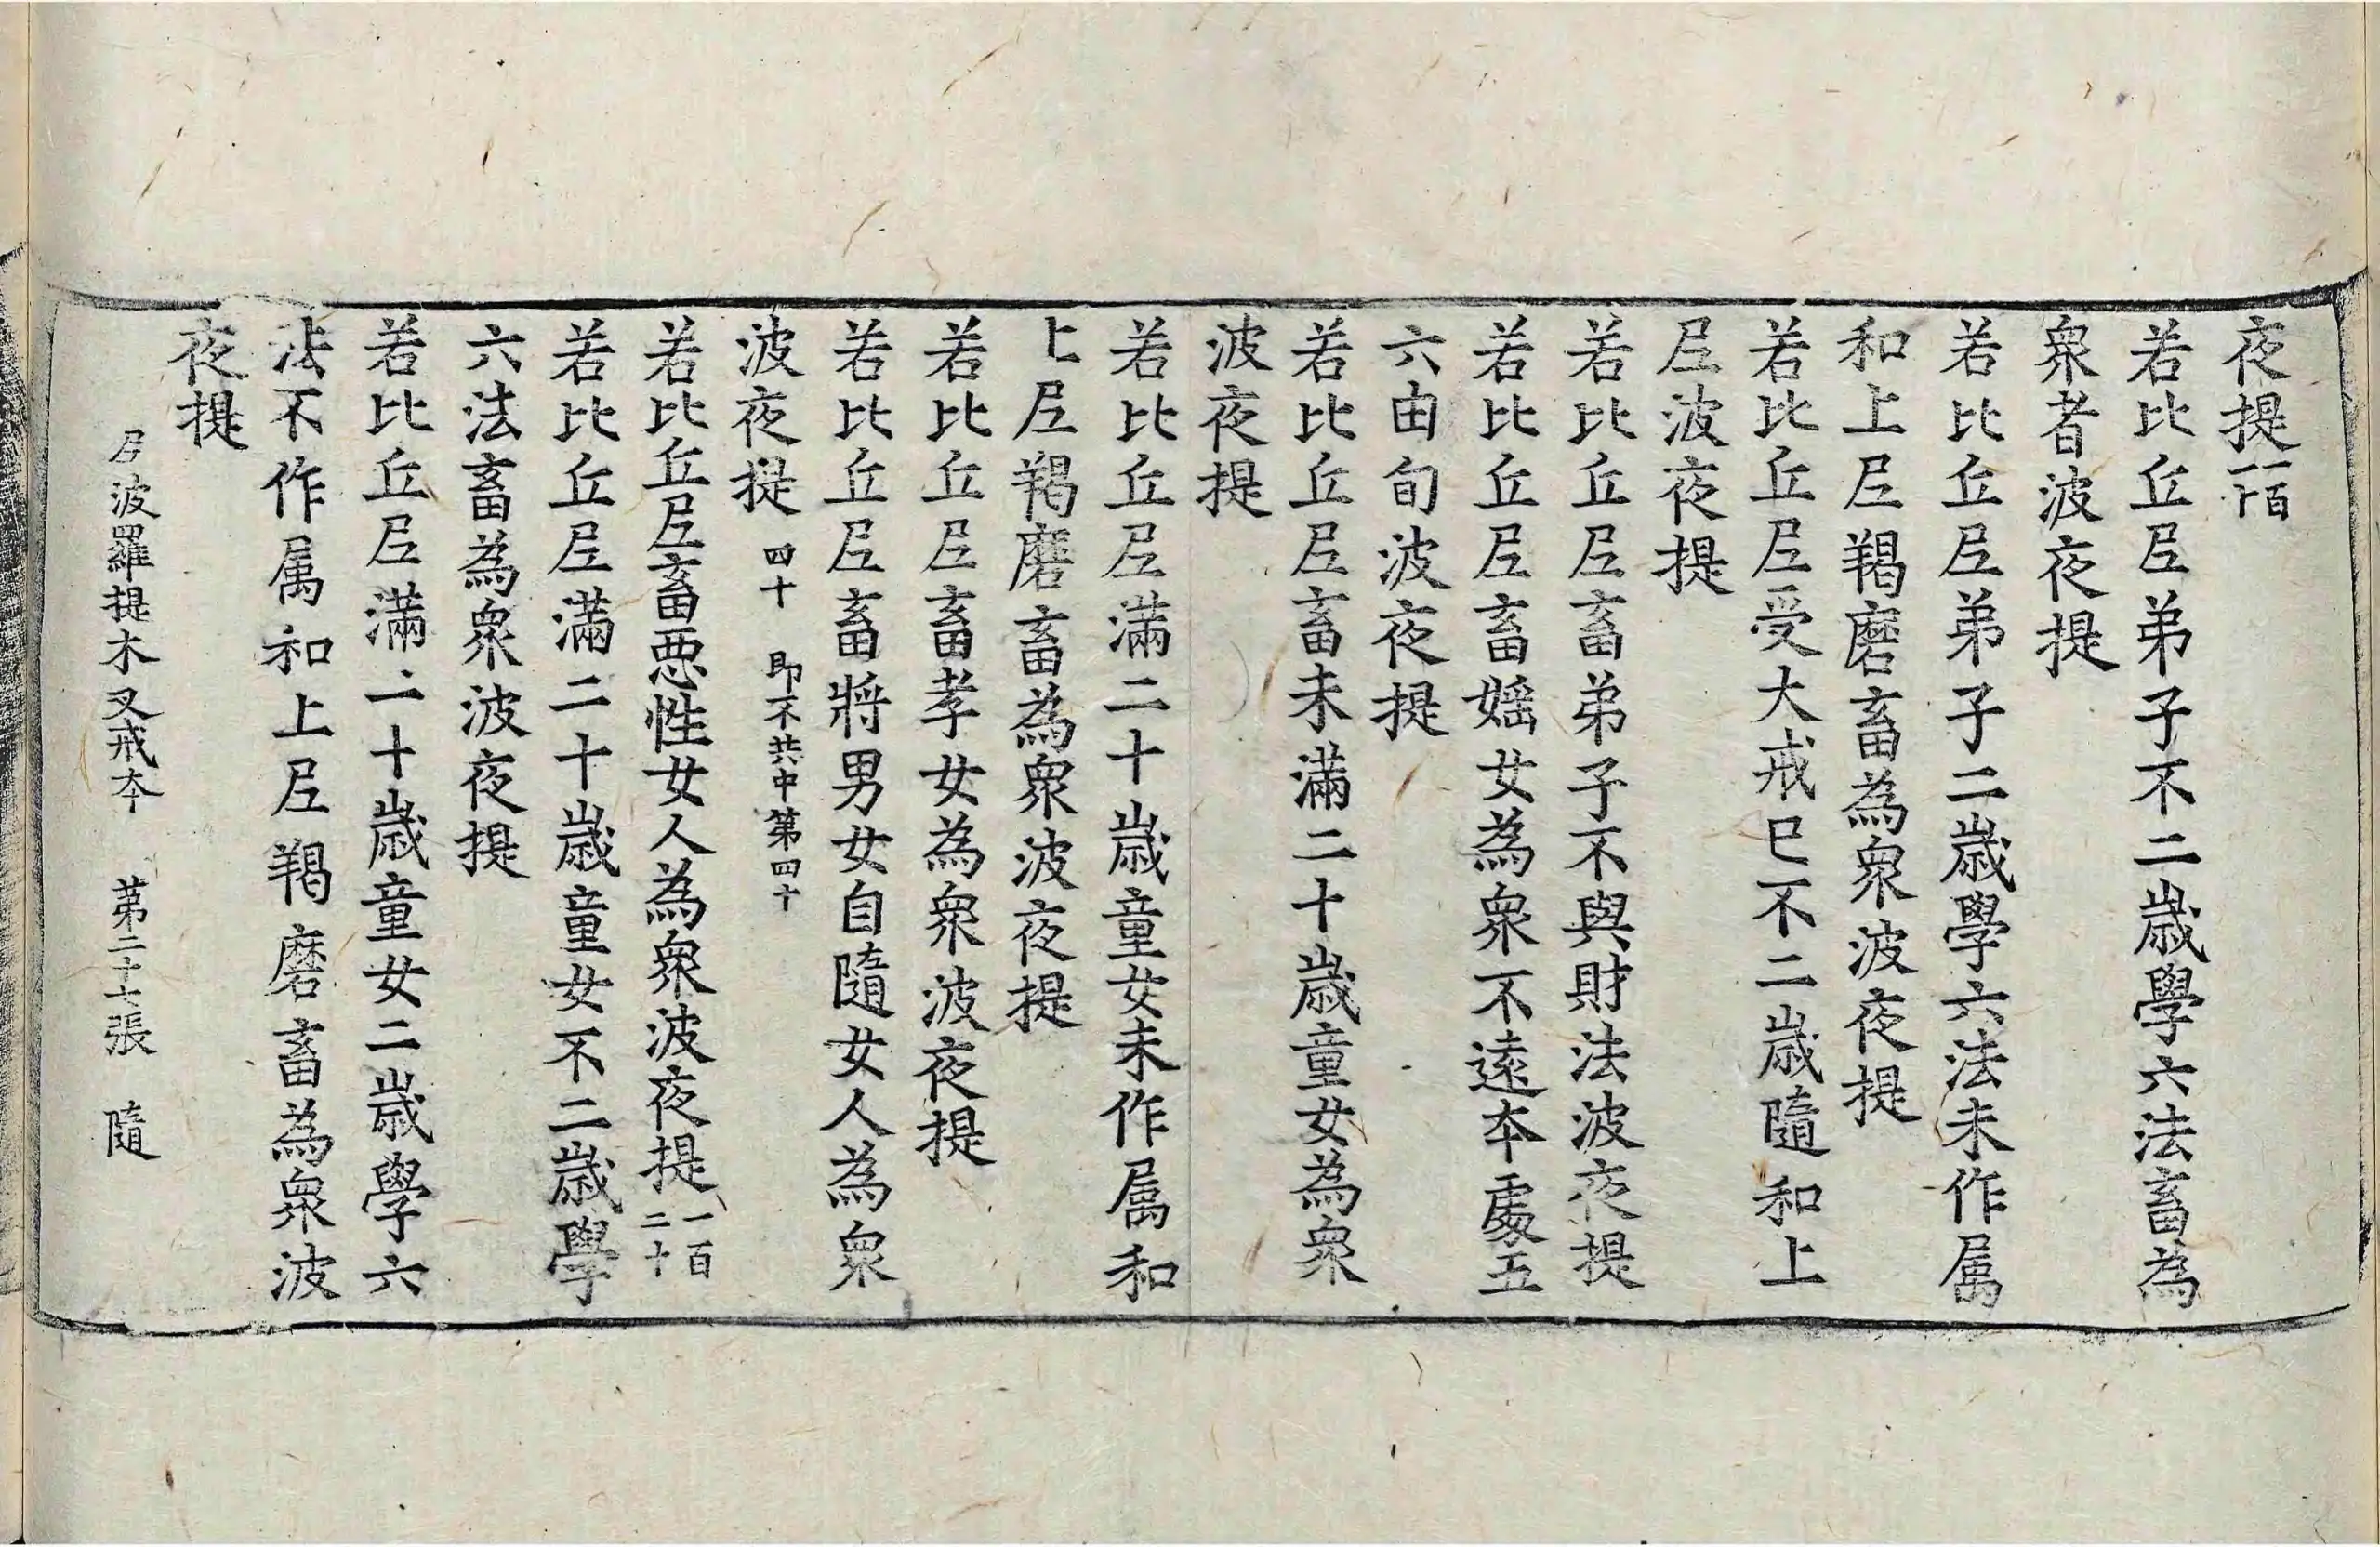 夜提一百一十
若比丘尼弟子不二歲學六法畜為
衆者波夜提
若比丘尼弟子二歲學六法未作属
和上尼羯磨畜為衆波夜提
若比丘尼受大戒已不二歲隨和上
尼波夜提
若比丘尼畜弟子不與財法波夜提
若比丘尼畜婬女為衆不遠本處五
六由旬波夜提
若比丘尼畜未滿二十歲童女為衆
波夜提
若比丘尼滿二十歲童女未作属和
上尼羯磨畜為衆波夜提
若比丘尼畜孝女為衆波夜提
若比丘尼畜將男女自隨女人為衆
波夜提 四十 即不共中第四十
若比丘尼畜惡性女人為衆波夜提一百二十
若比丘尼滿二十歲童女不二歲學
六法畜為衆波夜提
若比丘尼滿二十歲童女二歲學六
法不作属和上尼羯磨畜為衆波
夜提
尼波羅提木叉戒本 第二十七張 隨